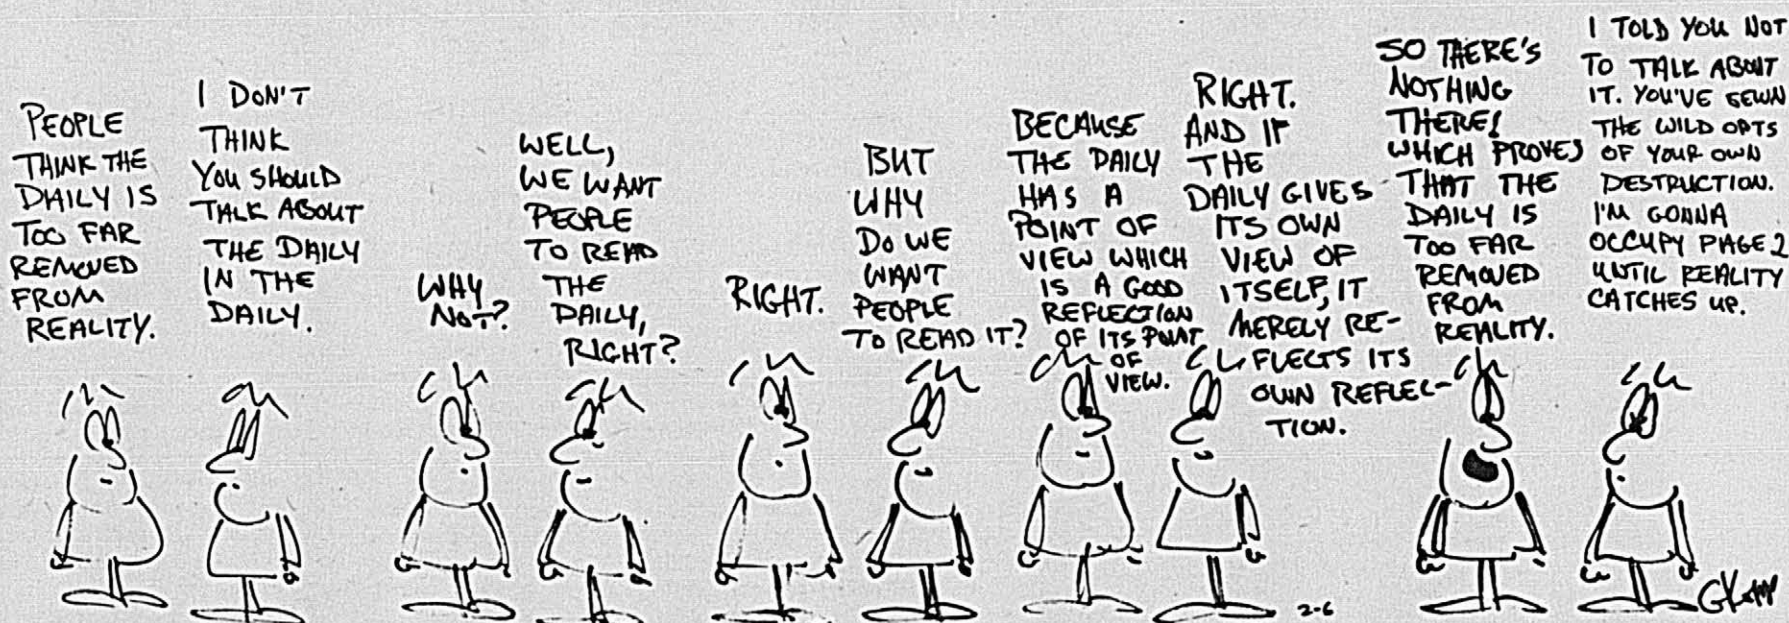 PEOPLE
THINK THE
DAILY IS
TOO FAR
REMOVED
FROM
REALITY.
I DON'T
THINK
YOU SHOULD
TALK ABOUT
THE DAILY
IN THE
DAILY.
WHY
NOT?
WELL,
WE WANT
PEOPLE
TO READ
THE
DAILY,
RIGHT?
RIGHT.
BUT
WHY
DO WE
WANT
PEOPLE
TO READ IT?
BECAUSE
THE DAILY
HAS A
POINT OF
VIEW WHICH
IS A GOOD
REFLECTION
OF ITS POINT
OF
VIEW.
RIGHT.
AND IF
THE
DAILY GIVES
ITS OWN
VIEW OF
ITSELF, IT
MERELY RE-
FLECTS ITS
OWN REFLEC-
TION.
SO THERE'S
NOTHING
THERE!
WHICH PROVES
THAT THE
DAILY IS
TOO FAR
REMOVED
FROM
REALITY.
I TOLD YOU NOT
TO TALK ABOUT
IT. YOU'VE SEWN
THE WILD OATS
OF YOUR OWN
DESTRUCTION.
I'M GONNA
OCCUPY PAGE 2
UNTIL REALITY
CATCHES UP.
2-6